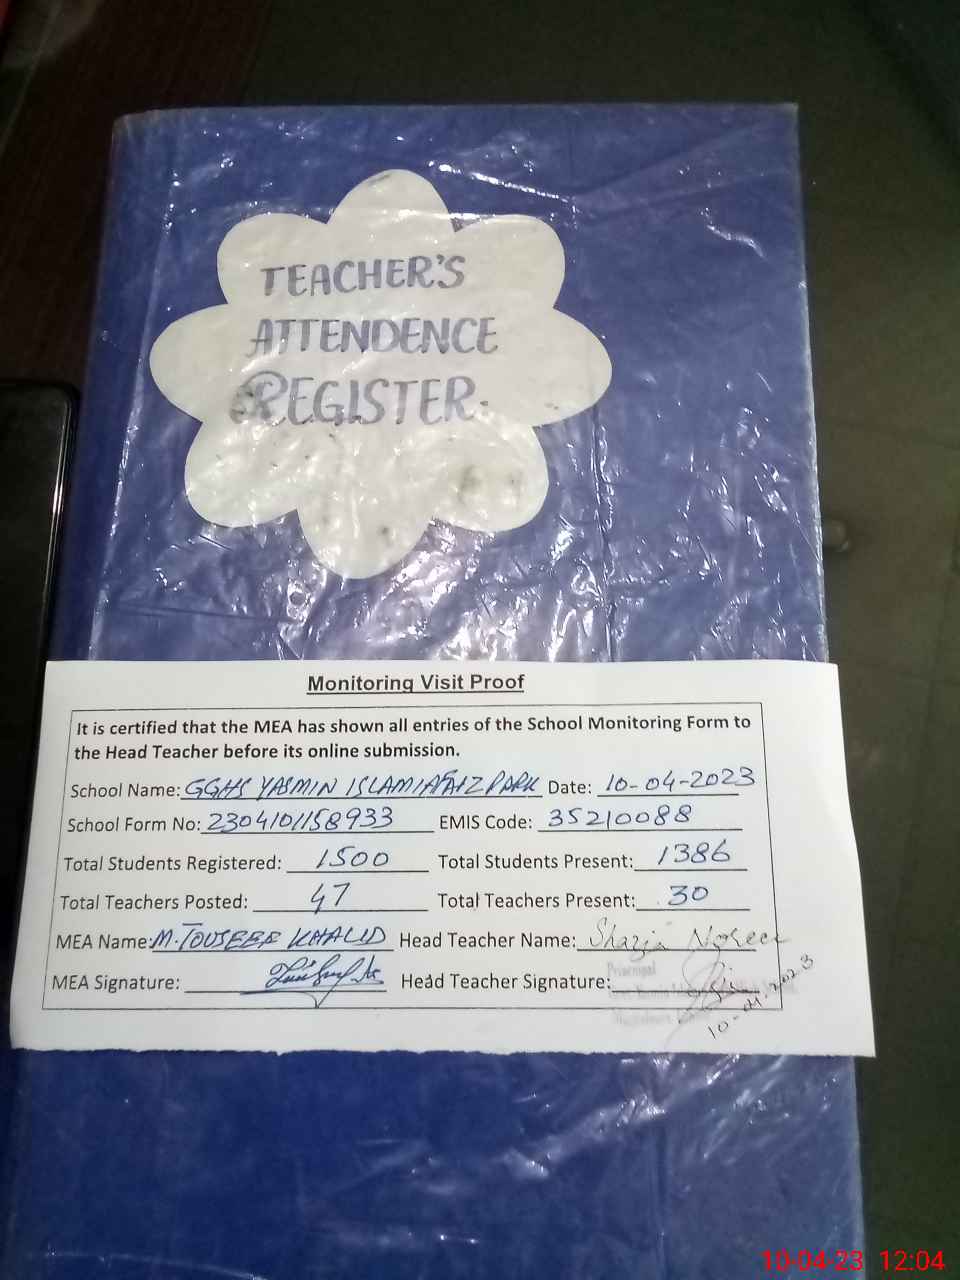 TEACHER'S
ATTENDENCE
REGISTER.
Monitoring Visit Proof
It is certified that the MEA has shown all entries of the School Monitoring Form to
the Head Teacher before its online submission.
School Name: GGHS YASMIN ISLAMIA FAIZ PARK Date: 10-04-2023
School Form No: 2304101158933 EMIS Code: 35210088
Total Students Registered: 1500 Total Students Present: 1386
Total Teachers Posted: 47 Total Teachers Present: 30
MEA Name: M. TOUSEEF KHALID Head Teacher Name: Shazia Noreen
MEA Signature: Head Teacher Signature:
Principal
10-04-2023
10-04-23 12:04